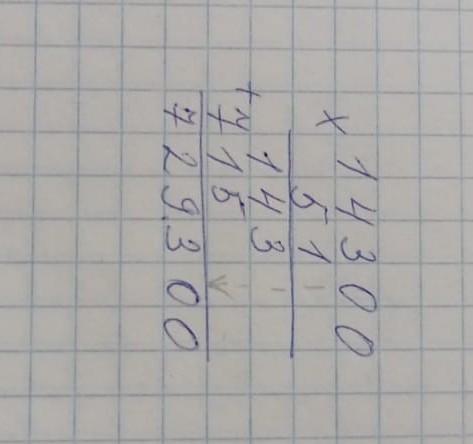 × 14300
51
143
+ 715
729300